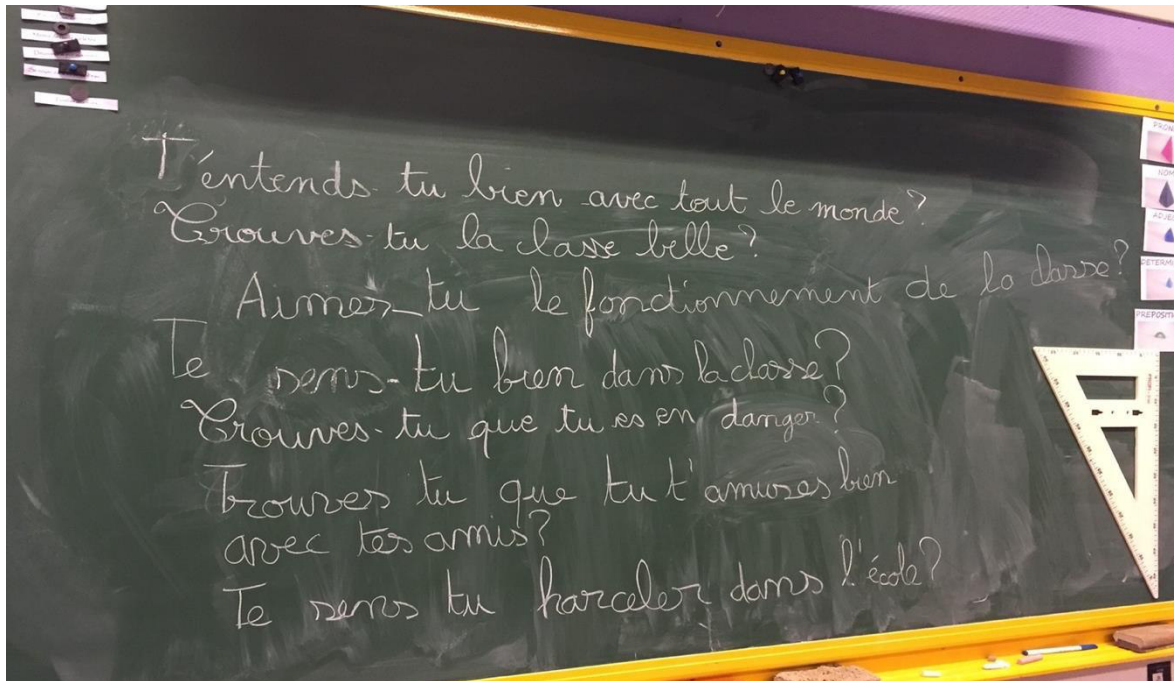 T'éntends-tu bien avec tout le monde?
Trouves-tu la classe belle?
Aimes-tu le fonctionnement de la classe?
Te sens-tu bien dans la classe?
Trouves-tu que tu es en danger?
Trouves tu que tu t'amuses bien
avec tes amis?
Te sens tu harceler dans l'école?
NOM